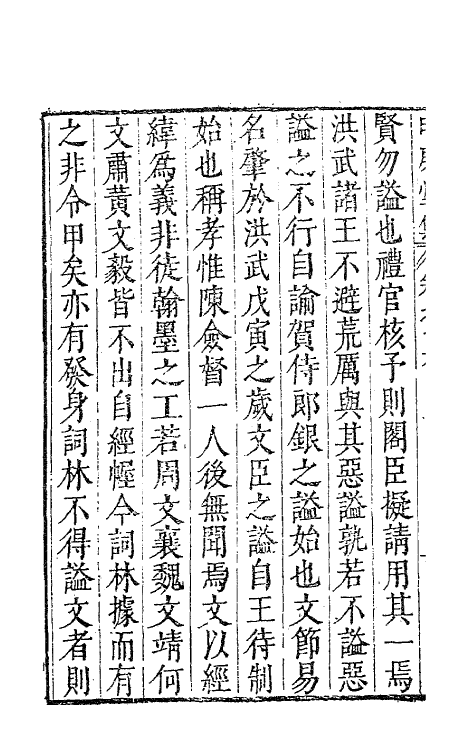 賢勿謚也禮官核予則閣臣擬請用其一焉
洪武諸王不避荒厲與其惡謚孰若不謚惡
謚之不行自諭賀侍郎銀之謚始也文節易
名肇於洪武戊寅之歲文臣之謚自王待制
始也稱孝惟陳僉督一人後無聞焉文以經
緯爲義非徒翰墨之工若周文襄魏文靖何
文肅黄文毅皆不出自經幄今詞林據而有
之非令甲矣亦有發身詞林不得謚文者則